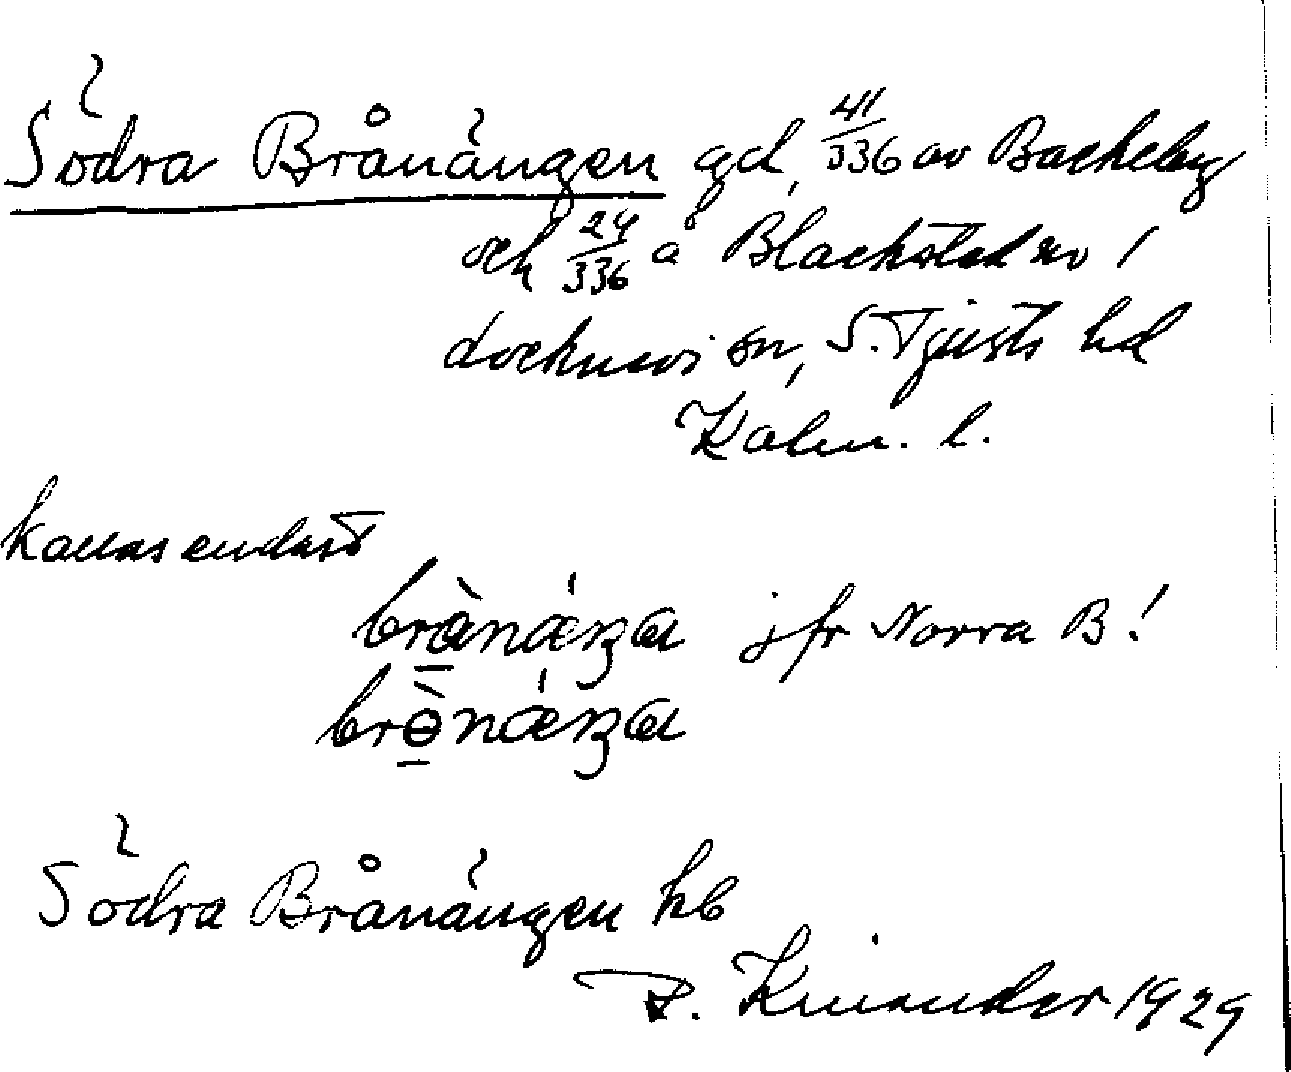 Södra Brånängen gd, 41/336 av Backeby
och 24/336 å Blackstad nr 1
Locknevi sn, S. Tjusts hd
Kalm. l.
kallas endast
brànǽŋa jfr Norra B!
brɵ̀nǽŋa
Södra Brånängen hb
R. Kinander 1929